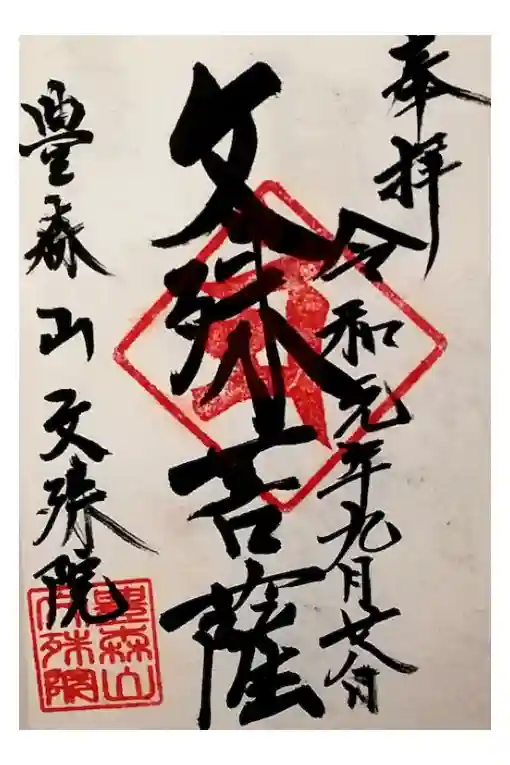 奉拝
令和元年九月廿八日
文殊菩薩
豊森山文殊院
豊森山
文殊院